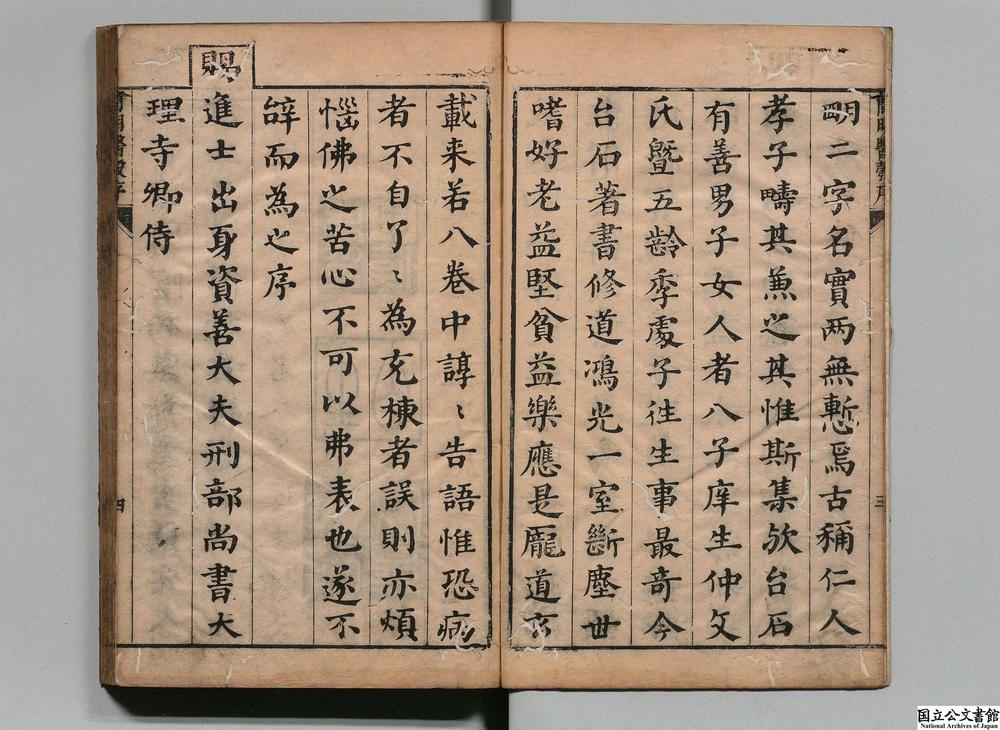 朙二字名實两無慙焉古稱仁人
孝子疇其兼之其惟斯集欤台石
有善男子女人者八子庠生仲文
氏曁五齡季處子徃生事最竒今
台石著書修道鴻光一室斷塵世
嗜好老益堅貧益樂應是龐道玄
三
載来若八卷中諄〻告語惟恐病
者不自了〻為充棟者誤則亦煩
惱佛之苦心不可以弗表也遂不
辝而為之序
賜
進士出身資善大夫刑部尚書大
理寺卿侍
四
国立公文書館
National Archives of Japan